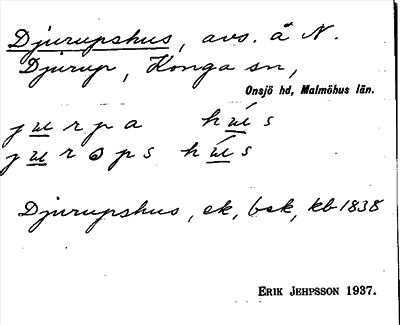 Djurupshus, avs. å N.
Djurup, Konga sn,
Onsjö hd, Malmöhus län.
jurpa hús
jurəps hús
Djurupshus, ek, bek, kb 1838
ERIK JEHPSSON 1937.